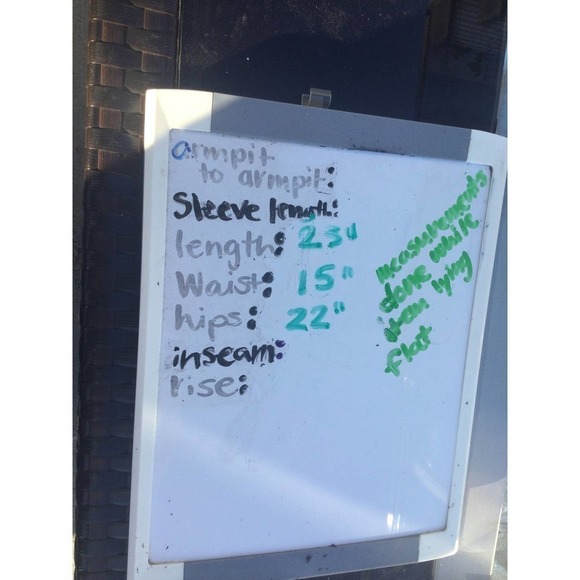 armpit
to armpit:
Sleeve length:
length: 23"
Waist: 15"
hips: 22"
inseam:
rise:
measurements
done while
item lying
flat